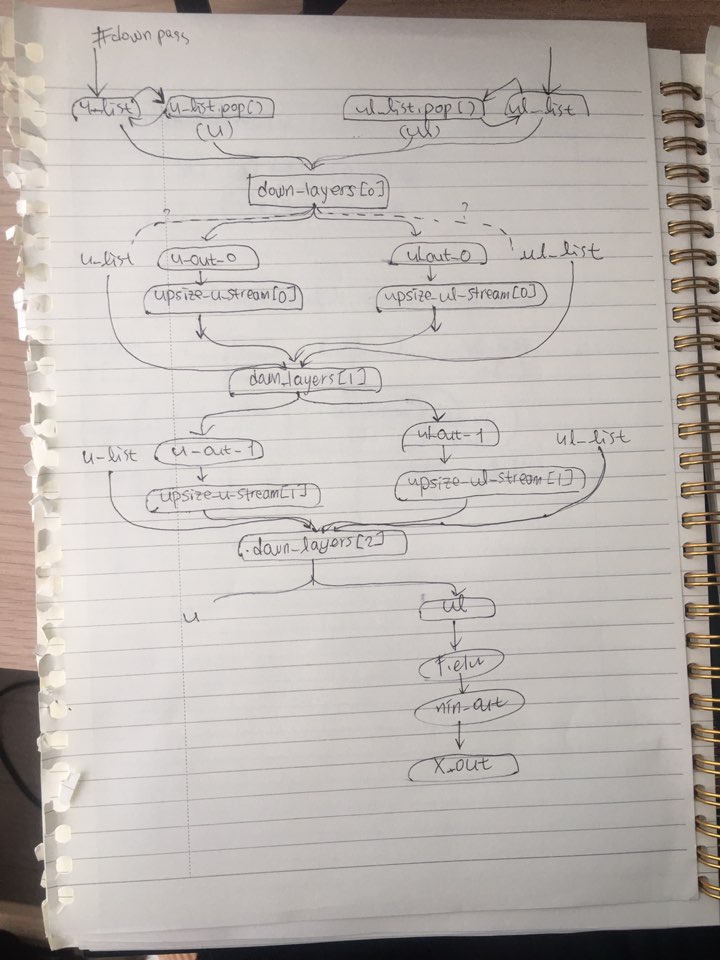 #down pass
u_list u_list.pop() ul_list.pop() ul_list
(u) (ul)
down_layers[0]
? ?
u_list u_out_0 ul_out_0 ul_list
upsize_u_stream[0] upsize_ul_stream[0]
down_layers[1]
u_list u_out_1 ul_out_1 ul_list
upsize_u_stream[1] upsize_ul_stream[1]
down_layers[2]
u ul
F.elu
nin_out
x_out